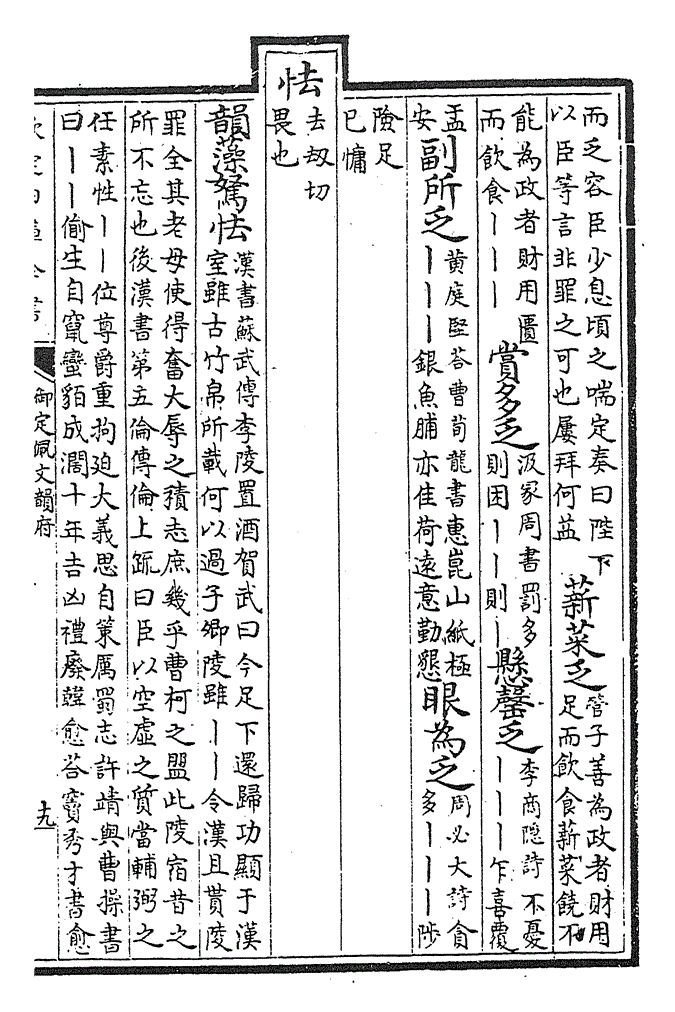 而乏容臣少息頃之喘定奏曰陛下
以臣等言非罪之可也屢拜何益
薪菜乏
管子善為政者財用
足而飲食薪菜饒不
能為政者財用匱
而飲食丨丨丨
賞多乏
汲冢周書罰多
則困丨丨則丨
懸罄乏
李商隠詩不憂
丨丨丨乍喜覆
盂
安
副所乏
黄庭堅荅曹荀龍書惠崑山紙極
丨丨丨銀魚脯亦佳荷遠意勤懇
眼為乏
周必大詩貪
多丨丨丨陟
險足
已慵
怯
去刼切
畏也
韻藻駑怯
漢書蘇武傳李陵置酒賀武曰今足下還歸功顯于漢
室雖古竹帛所載何以過子卿陵雖丨丨令漢且貰陵
罪全其老母使得奮大辱之積志庶幾乎曹柯之盟此陵宿昔之
所不忘也後漢書第五倫傳倫上疏曰臣以空虛之質當輔弼之
任素性丨丨位尊爵重拘迫大義思自策厲蜀志許靖與曹操書
曰丨丨偷生自竄蠻貊成濶十年吉凶禮廢韓愈荅竇秀才書愈
欽定四庫全書
御定佩文韻府
十九